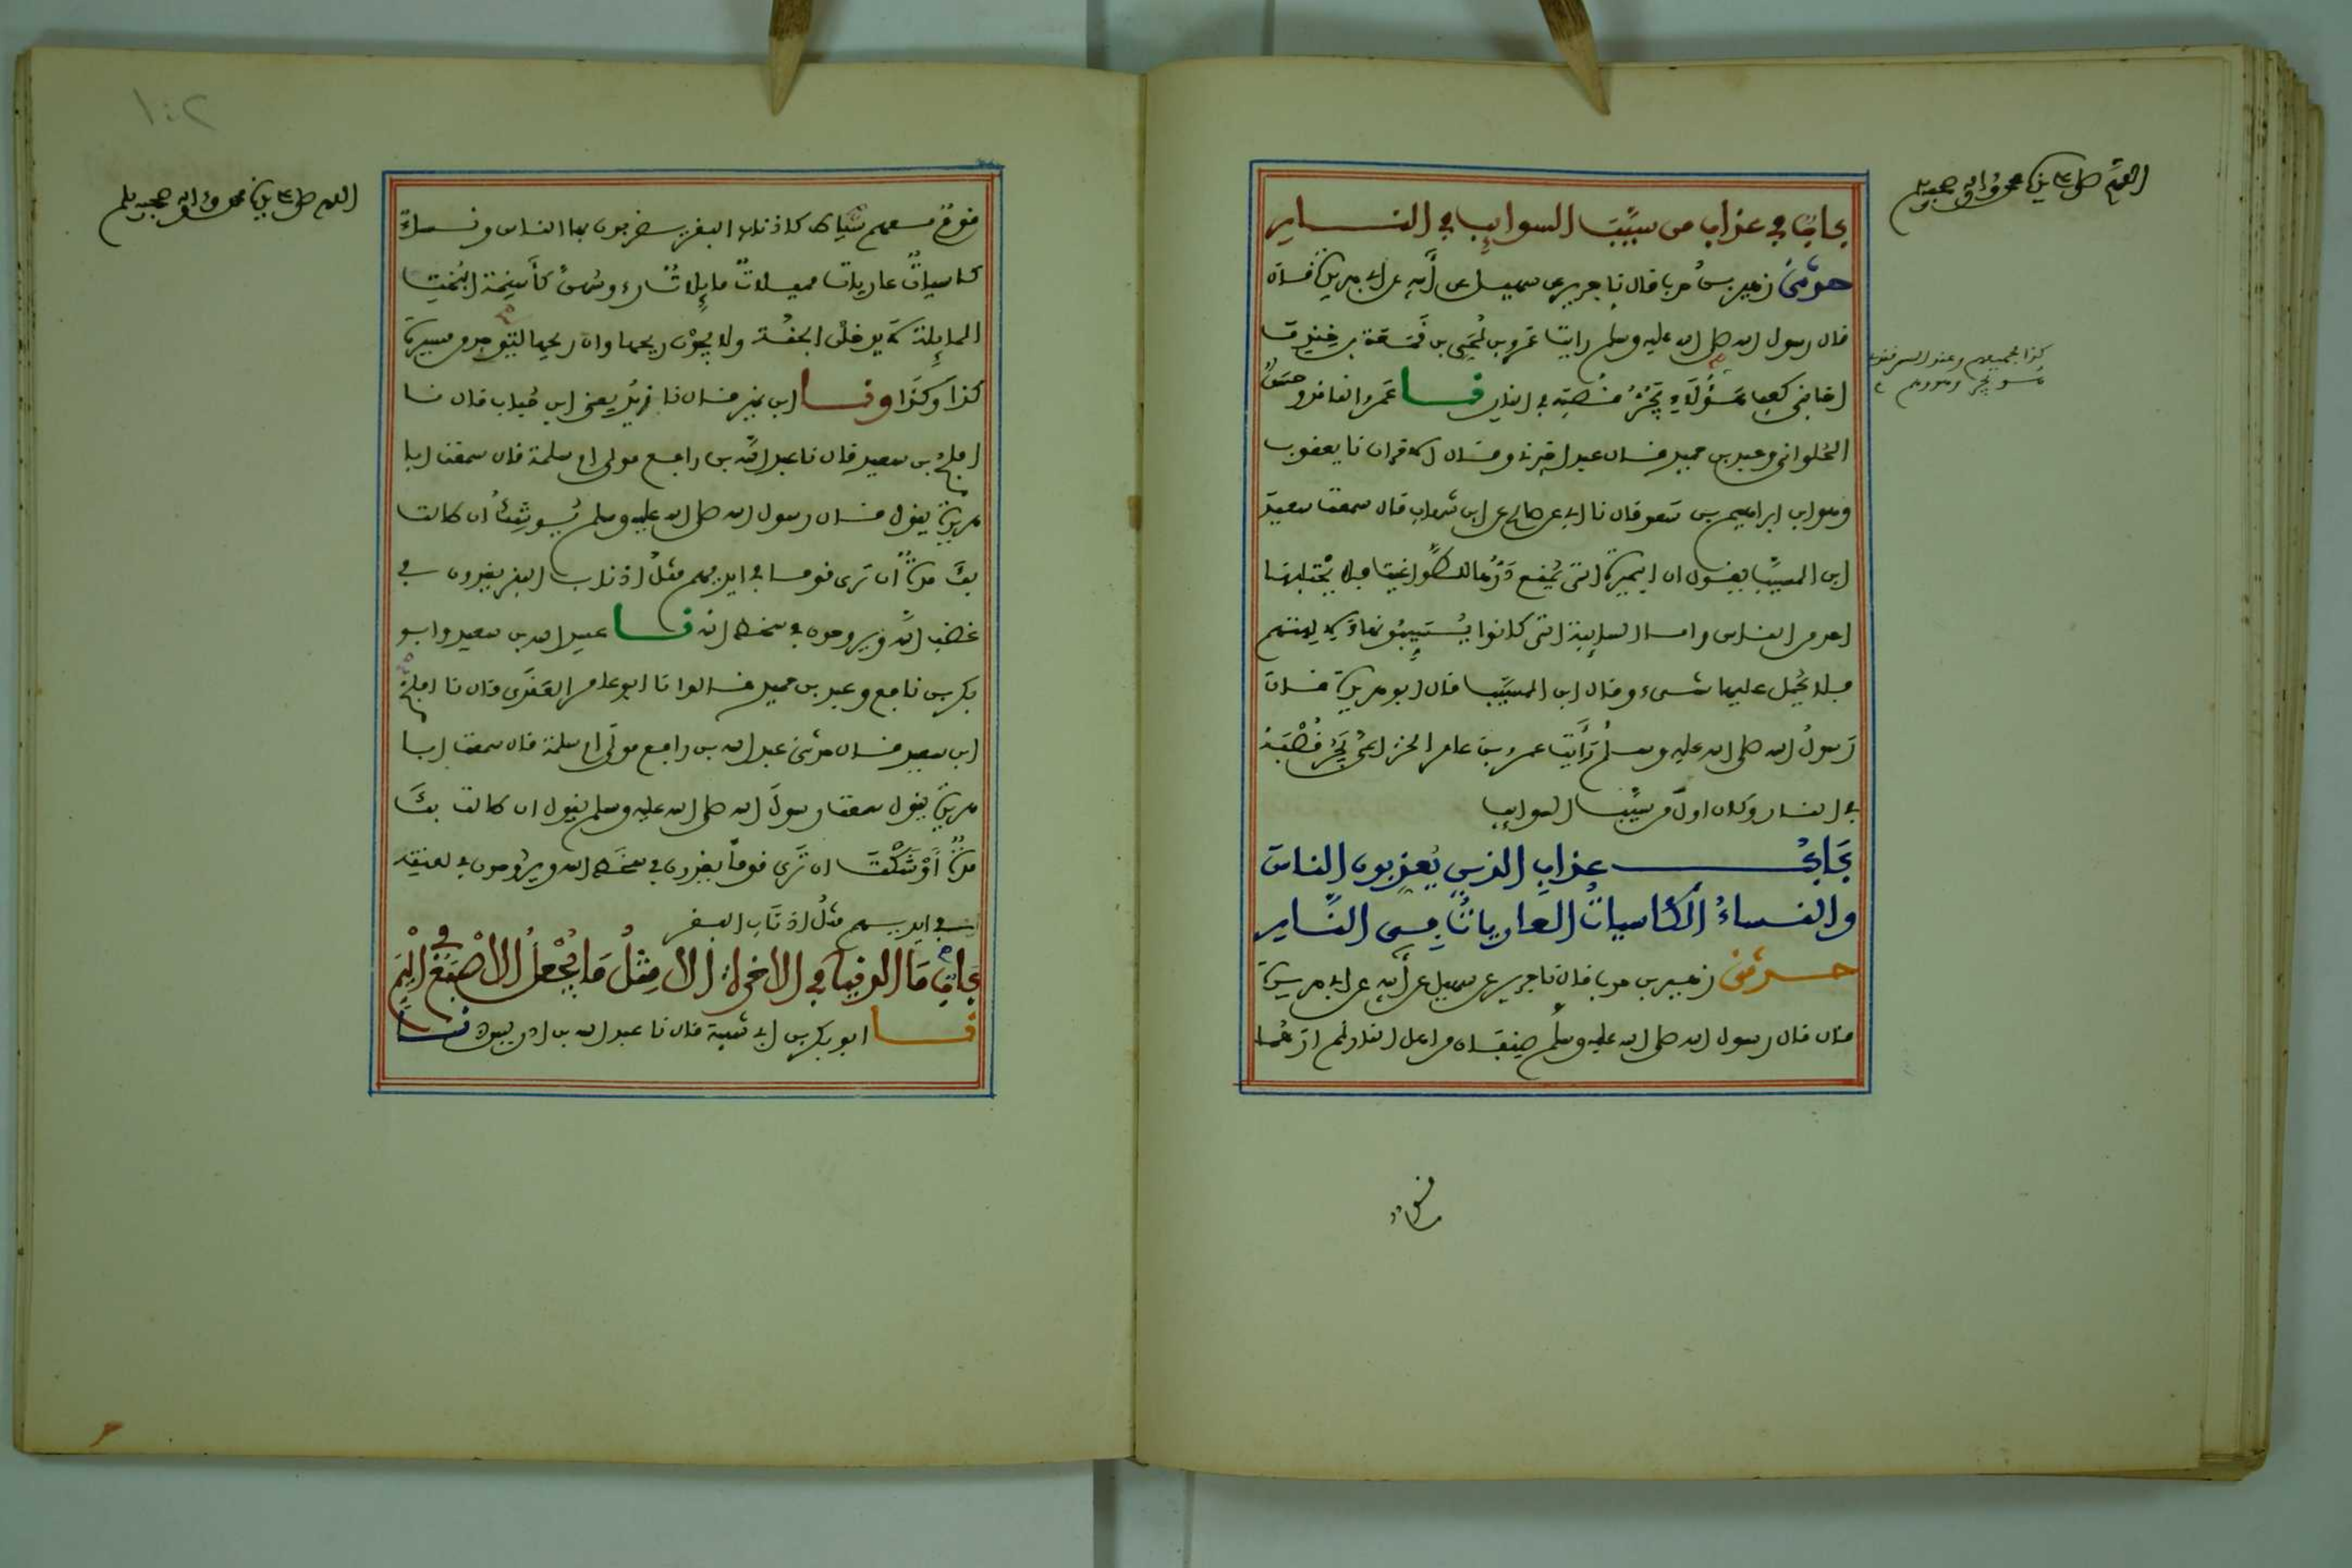 اللهم صل على سيدنا محمد وءاله وصحبه وسلم
باب في عذاب من سيب السوايب في النار
حدثني زهير بن حرب قال نا جرير عن سهيل عن أبيه عن ابي هريرة قال
قال رسول الله صلى الله عليه وسلم رايت عمرو بن لحي بن قمعة بن خندف
اخا بني كعب هؤلاء يجر قصبه في النار نا عمرو الناقد وحسن
الحلواني وعبد بن حميد قال عبد اخبرني وقال الاخران نا يعقوب
وهو ابن ابراهيم بن سعد قال نا ابي عن صالح عن ابن شهاب قال سمعت سعيد
ابن المسيب يقول ان البحيرة التي يمنع درها للطواغيت فلا يحتلبها
احد من الناس واما السايبة التي كانوا يسيبونها لالهتهم
فلا يحمل عليها شيء وقال ابن المسيب قال ابو هريرة قال
رسول الله صلى الله عليه وسلم رأيت عمرو بن عامر الخزاعي يجر قصبه
في النار وكان اول من سيب السوايب
باب عذاب الذين يعذبون الناس
والنساء الكاسيات العاريات في النار
حدثني زهير بن حرب قال نا جرير عن سهيل عن أبيه عن ابي هريرة
قال قال رسول الله صلى الله عليه وسلم صنفان من اهل النار لم ارهما
كذا
١٠٢
اللهم صل على سيدنا محمد وءاله وصحبه وسلم
قوم معهم سياط كاذناب البقر يضربون بها الناس ونساء
كاسيات عاريات مميلات مايلات رءوسهن كأسنمة البخت
المايلة لا يدخلن الجنة ولا يجدن ريحها وان ريحها لتوجد من مسيرة
كذا وكذا ونا ابن نمير قال نا زيد يعني ابن حباب قال نا
افلح بن سعيد قال نا عبد الله بن رافع مولى ام سلمة قال سمعت ابا
هريرة يقول قال رسول الله صلى الله عليه وسلم يوشك ان طالت
بك مدة ان ترى قوما في ايديهم مثل اذناب البقر يغدون في
غضب الله ويروحون في سخط الله نا عبيد الله بن سعيد وابو
بكر بن نافع وعبد بن حميد قالوا نا ابو عامر العقدي قال نا افلح
ابن سعيد قال حدثني عبد الله بن رافع مولى ام سلمة قال سمعت ابا
هريرة يقول سمعت رسول الله صلى الله عليه وسلم يقول ان طالت بك
مدة أوشكت ان ترى قوما يغدون في سخط الله ويروحون في لعنته
في ايديهم مثل اذناب البقر
باب ما الدنيا في الاخرة الا مثل ما يجعل الاصبع في اليم
نا ابو بكر بن ابي شيبة قال نا عبد الله بن ادريس ونا